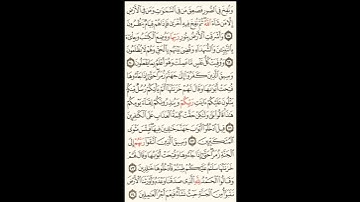 وَنُفِخَ فِي ٱلصُّورِ فَصَعِقَ مَن فِي ٱلسَّمَٰوَٰتِ وَمَن فِي ٱلْأَرْضِ
إِلَّا مَن شَآءَ ٱللَّهُ ثُمَّ نُفِخَ فِيهِ أُخْرَىٰ فَإِذَا هُمْ قِيَامٌ يَنظُرُونَ
۝٦٨ وَأَشْرَقَتِ ٱلْأَرْضُ بِنُورِ رَبِّهَا وَوُضِعَ ٱلْكِتَٰبُ وَجِا۟يٓءَ
بِٱلنَّبِيِّـۧنَ وَٱلشُّهَدَآءِ وَقُضِيَ بَيْنَهُم بِٱلْحَقِّ وَهُمْ لَا يُظْلَمُونَ
۝٦٩ وَوُفِّيَتْ كُلُّ نَفْسٍ مَّا عَمِلَتْ وَهُوَ أَعْلَمُ بِمَا يَفْعَلُونَ
۝٧٠ وَسِيقَ ٱلَّذِينَ كَفَرُوٓا۟ إِلَىٰ جَهَنَّمَ زُمَرًا حَتَّىٰٓ إِذَا جَآءُوهَا
فُتِحَتْ أَبْوَٰبُهَا وَقَالَ لَهُمْ خَزَنَتُهَآ أَلَمْ يَأْتِكُمْ رُسُلٌ مِّنكُمْ
يَتْلُونَ عَلَيْكُمْ ءَايَٰتِ رَبِّكُمْ وَيُنذِرُونَكُمْ لِقَآءَ يَوْمِكُمْ
هَٰذَا قَالُوا۟ بَلَىٰ وَلَٰكِنْ حَقَّتْ كَلِمَةُ ٱلْعَذَابِ عَلَى ٱلْكَٰفِرِينَ
۝٧١ قِيلَ ٱدْخُلُوٓا۟ أَبْوَٰبَ جَهَنَّمَ خَٰلِدِينَ فِيهَا فَبِئْسَ مَثْوَى
ٱلْمُتَكَبِّرِينَ ۝٧٢ وَسِيقَ ٱلَّذِينَ ٱتَّقَوْا۟ رَبَّهُمْ إِلَى
ٱلْجَنَّةِ زُمَرًا حَتَّىٰٓ إِذَا جَآءُوهَا وَفُتِحَتْ أَبْوَٰبُهَا وَقَالَ لَهُمْ
خَزَنَتُهَا سَلَٰمٌ عَلَيْكُمْ طِبْتُمْ فَٱدْخُلُوهَا خَٰلِدِينَ ۝٧٣
وَقَالُوا۟ ٱلْحَمْدُ لِلَّهِ ٱلَّذِي صَدَقَنَا وَعْدَهُۥ وَأَوْرَثَنَا ٱلْأَرْضَ
نَتَبَوَّأُ مِنَ ٱلْجَنَّةِ حَيْثُ نَشَآءُ فَنِعْمَ أَجْرُ ٱلْعَٰمِلِينَ ۝٧٤